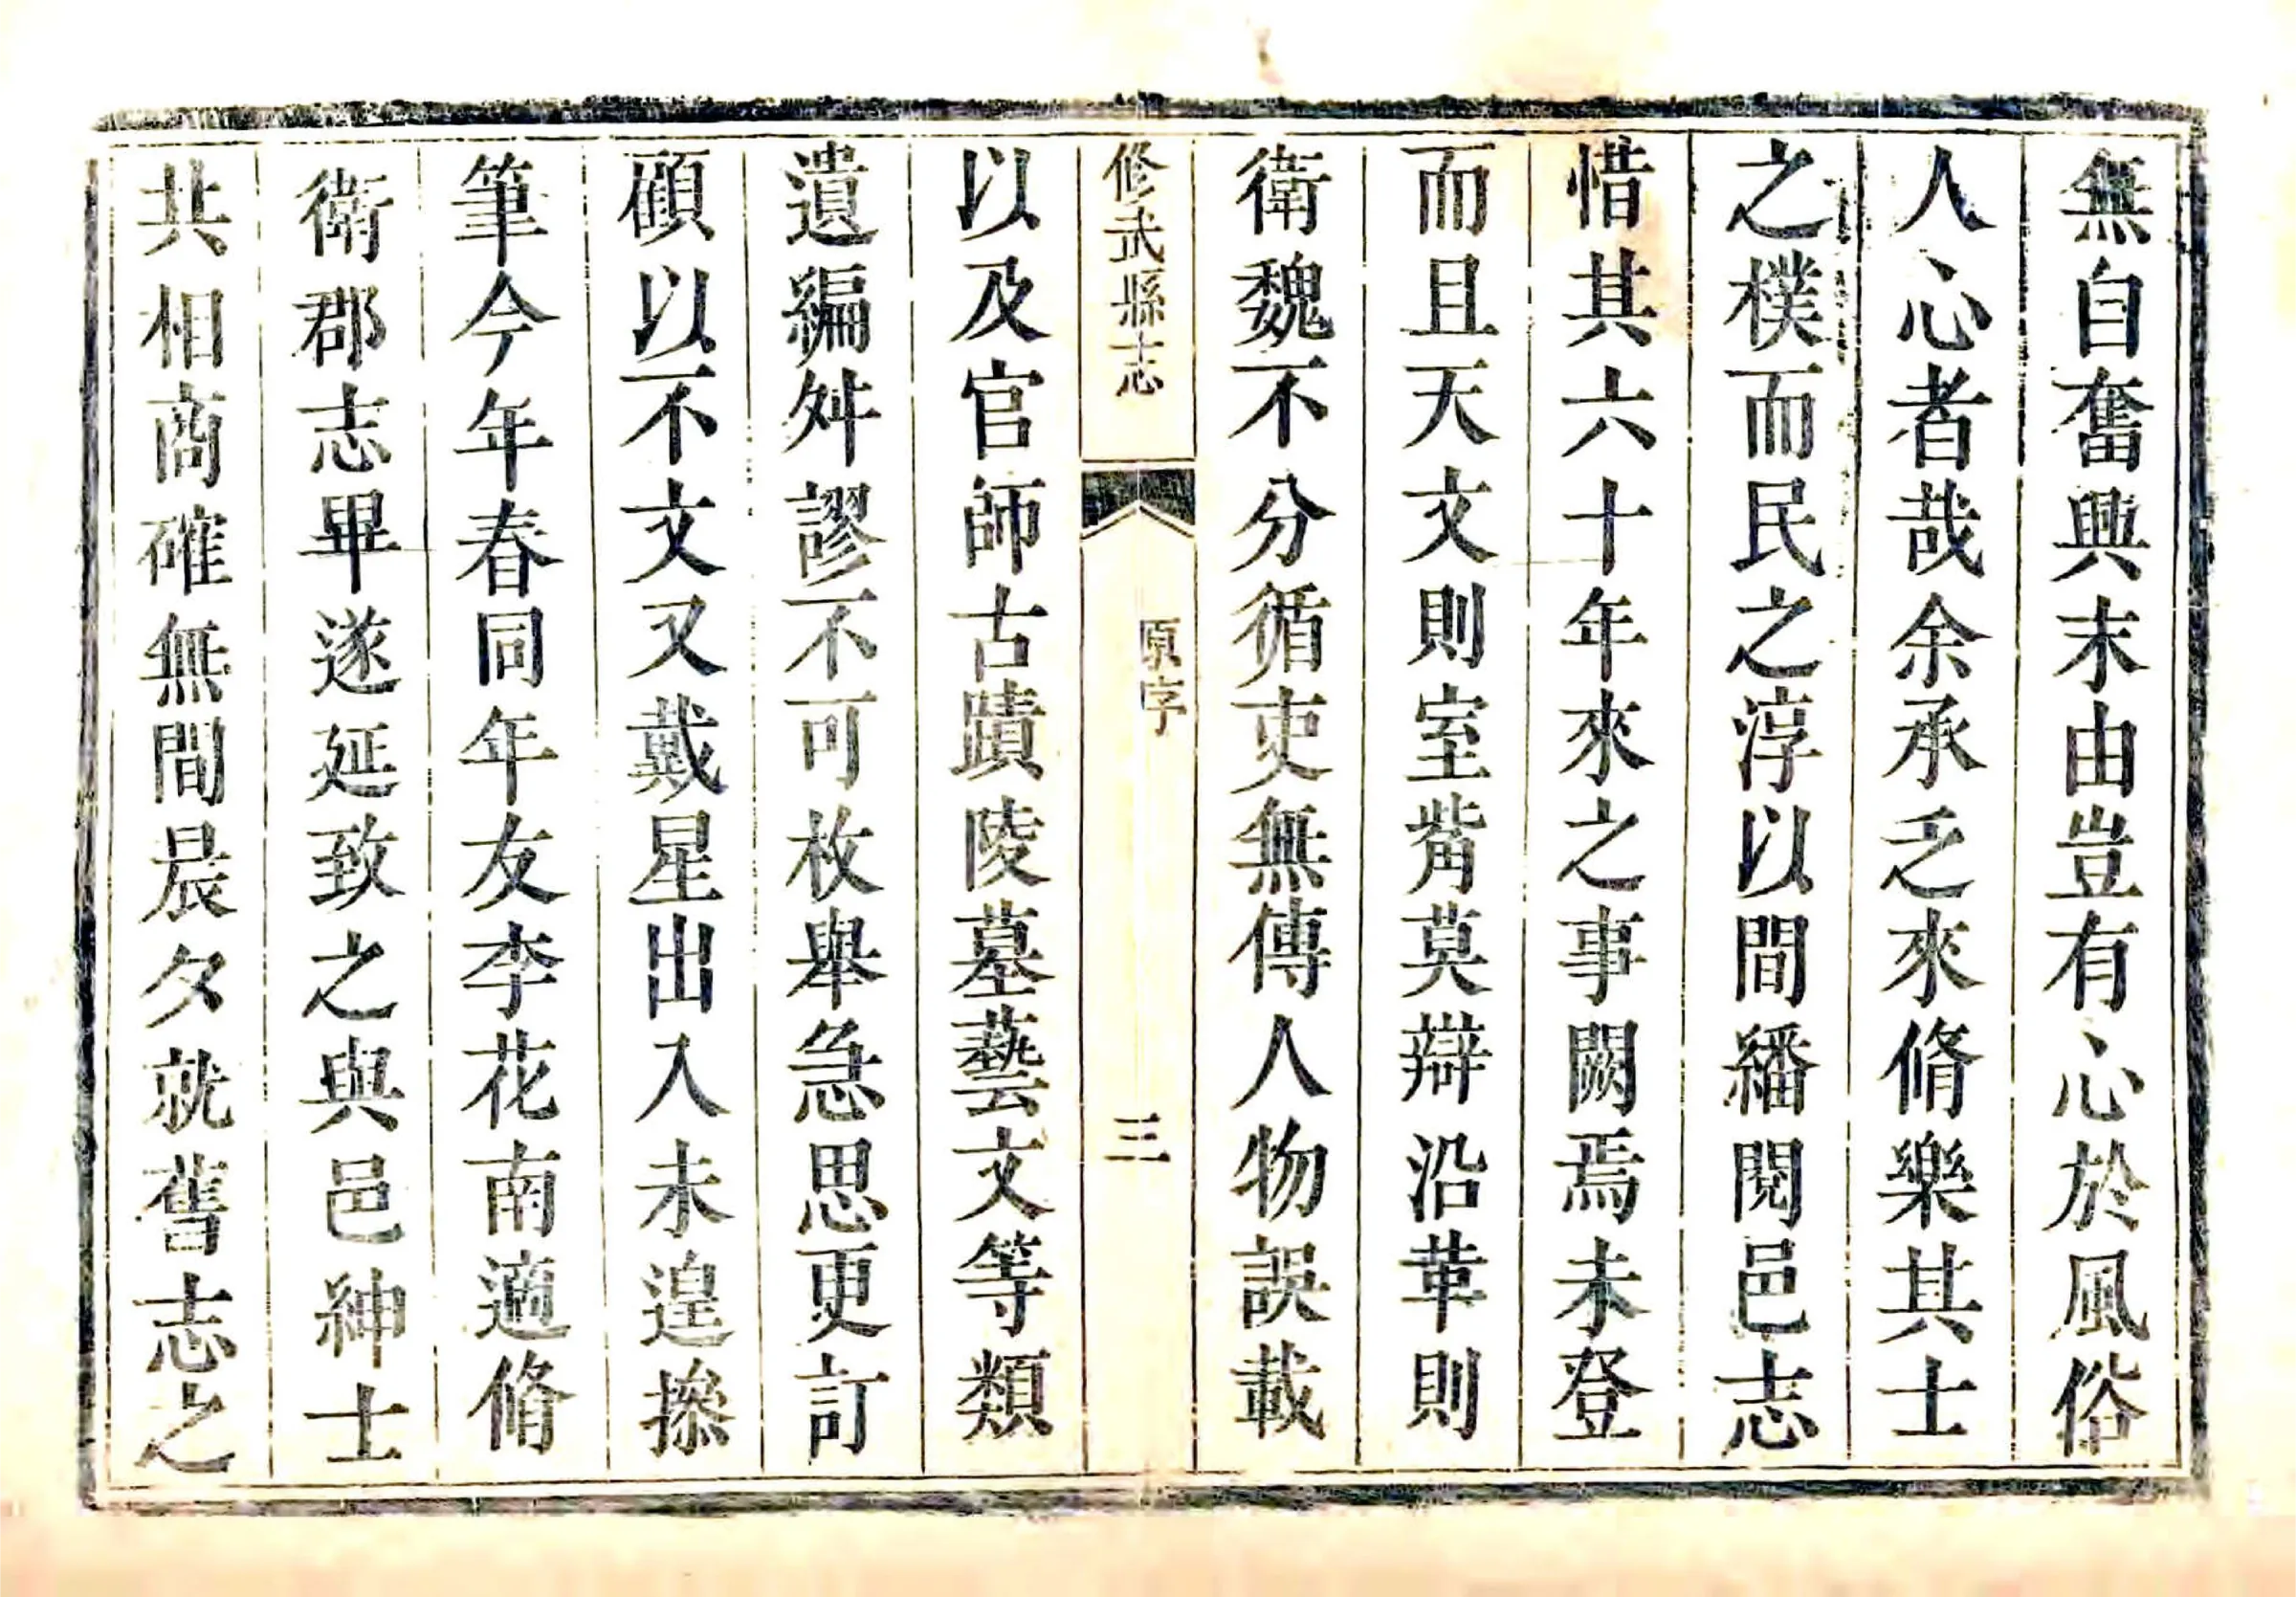 無自奮興末由豈有心於風俗
人心者哉余承乏來脩樂其士
之樸而民之淳以間繙閱邑志
惜其六十年來之事闕焉未登
而且天文則室觜莫辯沿革則
衛魏不分循吏無傳人物誤載
修武縣志
原字
三
以及官師古蹟陵墓藝文等類
遺編舛謬不可枚舉急思更訂
顧以不文又戴星出入未遑搽
筆今年春同年友李花南適脩
衛郡志畢遂延致之與邑紳士
共相商確無間晨夕就舊志之